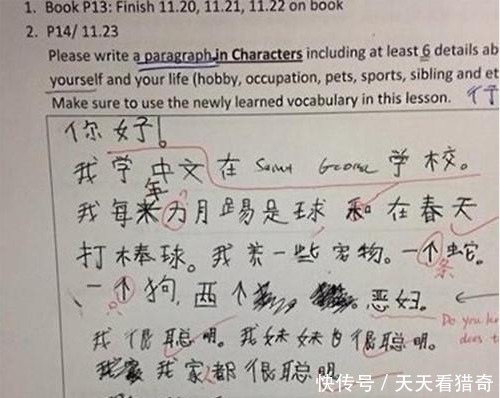 1. Book P13: Finish 11.20, 11.21, 11.22 on book
2. P14/ 11.23
Please write a paragraph in Characters including at least 6 details ab
yourself and your life (hobby, occupation, pets, sports, sibling and et
Make sure to use the newly learned vocabulary in this lesson.
你好!
我学中文在 Saint George 学校。
年
我每米力月踢是球和在春天
打棒球。我养一些宠物。一个蛇。
条
?
一个狗,西个 恶妇。
Do you
does t
我很聪明。我妹妹也很聪明。
我家都很聪明
快传号 / 天天看猎奇